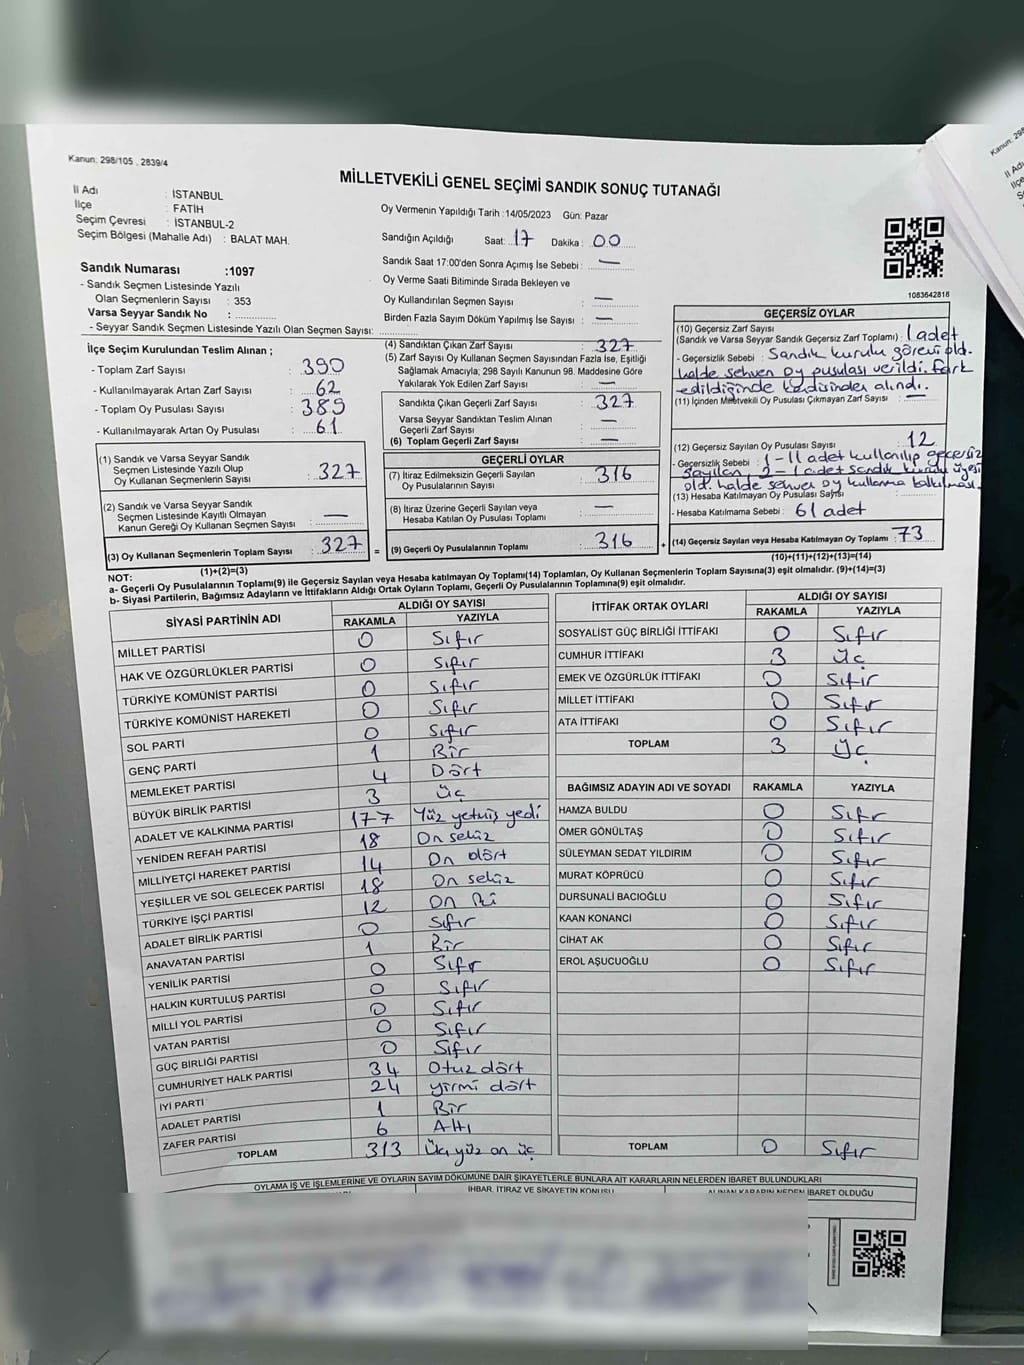 Kanun: 298/105 , 2839/4
MİLLETVEKİLİ GENEL SEÇİMİ SANDIK SONUÇ TUTANAĞI
İl Adı : İSTANBUL
İlçe : FATİH
Seçim Çevresi : İSTANBUL-2
Seçim Bölgesi (Mahalle Adı) : BALAT MAH.
Oy Vermenin Yapıldığı Tarih :14/05/2023 Gün: Pazar
Sandığın Açıldığı Saat: 17 Dakika : 00
Sandık Saat 17:00'den Sonra Açımış İse Sebebi : —
Oy Verme Saati Bitiminde Sırada Bekleyen ve
Oy Kullandırılan Seçmen Sayısı : —
Birden Fazla Sayım Döküm Yapılmış İse Sayısı : —
1083642818
Sandık Numarası :1097
- Sandık Seçmen Listesinde Yazılı
Olan Seçmenlerin Sayısı : 353
Varsa Seyyar Sandık No :
- Seyyar Sandık Seçmen Listesinde Yazılı Olan Seçmen Sayısı:
İlçe Seçim Kurulundan Teslim Alınan ;
- Toplam Zarf Sayısı : 390
- Kullanılmayarak Artan Zarf Sayısı : 62
- Toplam Oy Pusulası Sayısı : 389
- Kullanılmayarak Artan Oy Pusulası : 61
(1) Sandık ve Varsa Seyyar Sandık
Seçmen Listesinde Yazılı Olup
Oy Kullanan Seçmenlerin Sayısı : 327
(2) Sandık ve Varsa Seyyar Sandık
Seçmen Listesinde Kayıtlı Olmayan
Kanun Gereği Oy Kullanan Seçmen Sayısı : —
(3) Oy Kullanan Seçmenlerin Toplam Sayısı : 327
(1)+(2)=(3)
(4) Sandıktan Çıkan Zarf Sayısı : 327
(5) Zarf Sayısı Oy Kullanan Seçmen Sayısından Fazla İse, Eşitliği
Sağlamak Amacıyla, 298 Sayılı Kanunun 98. Maddesine Göre
Yakılarak Yok Edilen Zarf Sayısı : —
Sandıkta Çıkan Geçerli Zarf Sayısı : 327
Varsa Seyyar Sandıktan Teslim Alınan
Geçerli Zarf Sayısı : —
(6) Toplam Geçerli Zarf Sayısı : —
GEÇERLİ OYLAR
(7) İtiraz Edilmeksizin Geçerli Sayılan
Oy Pusulasının Sayısı : 316
(8) İtiraz Üzerine Geçerli Sayılan veya
Hesaba Katılan Oy Pusulası Toplamı : —
= (9) Geçerli Oy Pusulalarının Toplamı : 316 +
GEÇERSİZ OYLAR
(10) Geçersiz Zarf Sayısı
(Sandık ve Varsa Seyyar Sandık Geçersiz Zarf Toplamı) : 1 adet
- Geçersizlik Sebebi : Sandık kurulu görevi old.
halde sehven oy pusulası verildi. Fark
edildiğinde kendisinden alındı.
(11) İçinden Milletvekili Oy Pusulası Çıkmayan Zarf Sayısı : —
(12) Geçersiz Sayılan Oy Pusulası Sayısı : 12
- Geçersizlik Sebebi : 1-11 adet kullanılıp geçersiz
sayılan, 2-1 adet sandık kurulu üyesi
old. halde sehven oy kullanma
(13) Hesaba Katılmayan Oy Pusulası Sayısı :
- Hesaba Katılmama Sebebi : 61 adet
(14) Geçersiz Sayılan veya Hesaba Katılmayan Oy Toplamı : 73
(10)+(11)+(12)+(13)=(14)
NOT:
a- Geçerli Oy Pusulalarının Toplamı(9) ile Geçersiz Sayılan veya Hesaba katılmayan Oy Toplamı(14) Toplamları, Oy Kullanan Seçmenlerin Toplam Sayısına(3) eşit olmalıdır. (9)+(14)=(3)
b- Siyasi Partilerin, Bağımsız Adayların ve İttifakların Aldığı Ortak Oyların Toplamı, Geçerli Oy Pusulalarının Toplamına(9) eşit olmalıdır.
SİYASİ PARTİNİN ADI ALDIĞI OY SAYISI
RAKAMLA YAZIYLA
MİLLET PARTİSİ 0 Sıfır
HAK VE ÖZGÜRLÜKLER PARTİSİ 0 Sıfır
TÜRKİYE KOMÜNİST PARTİSİ 0 Sıfır
TÜRKİYE KOMÜNİST HAREKETİ 0 Sıfır
SOL PARTİ 0 Sıfır
GENÇ PARTİ 1 Bir
MEMLEKET PARTİSİ 4 Dört
BÜYÜK BİRLİK PARTİSİ 3 Üç
ADALET VE KALKINMA PARTİSİ 177 Yüz yetmiş yedi
YENİDEN REFAH PARTİSİ 18 On sekiz
MİLLİYETÇİ HAREKET PARTİSİ 14 On dört
YEŞİLLER VE SOL GELECEK PARTİSİ 18 On sekiz
TÜRKİYE İŞÇİ PARTİSİ 12 On iki
ADALET BİRLİK PARTİSİ 0 Sıfır
ANAVATAN PARTİSİ 1 Bir
YENİLİK PARTİSİ 0 Sıfır
HALKIN KURTULUŞ PARTİSİ 0 Sıfır
MİLLİ YOL PARTİSİ 0 Sıfır
VATAN PARTİSİ 0 Sıfır
GÜÇ BİRLİĞİ PARTİSİ 0 Sıfır
CUMHURİYET HALK PARTİSİ 34 Otuz dört
İYİ PARTİ 24 yirmi dört
ADALET PARTİSİ 1 Bir
ZAFER PARTİSİ 6 Altı
TOPLAM 313 Üç yüz on üç
İTTİFAK ORTAK OYLARI ALDIĞI OY SAYISI
RAKAMLA YAZIYLA
SOSYALİST GÜÇ BİRLİĞİ İTTİFAKI 0 Sıfır
CUMHUR İTTİFAKI 3 Üç
EMEK VE ÖZGÜRLÜK İTTİFAKI 0 Sıfır
MİLLET İTTİFAKI 0 Sıfır
ATA İTTİFAKI 0 Sıfır
TOPLAM 3 Üç
BAĞIMSIZ ADAYIN ADI VE SOYADI RAKAMLA YAZIYLA
HAMZA BULDU 0 Sıfır
ÖMER GÖNÜLTAŞ 0 Sıfır
SÜLEYMAN SEDAT YILDIRIM 0 Sıfır
MURAT KÖPRÜCÜ 0 Sıfır
DURSUNALİ BACIOĞLU 0 Sıfır
KAAN KONANCİ 0 Sıfır
CİHAT AK 0 Sıfır
EROL AŞUCUOĞLU 0 Sıfır
TOPLAM 0 Sıfır
OYLAMA İŞ VE İŞLEMLERİNE VE OYLARIN SAYIM DÖKÜMÜNE DAİR ŞİKAYETLERLE BUNLARA AİT KARARLARIN NELERDEN İBARET BULUNDUKLARI
İHBAR, İTİRAZ VE ŞİKAYETİN KONUSU
ALINAN KARARIN NEDEN İBARET OLDUĞU